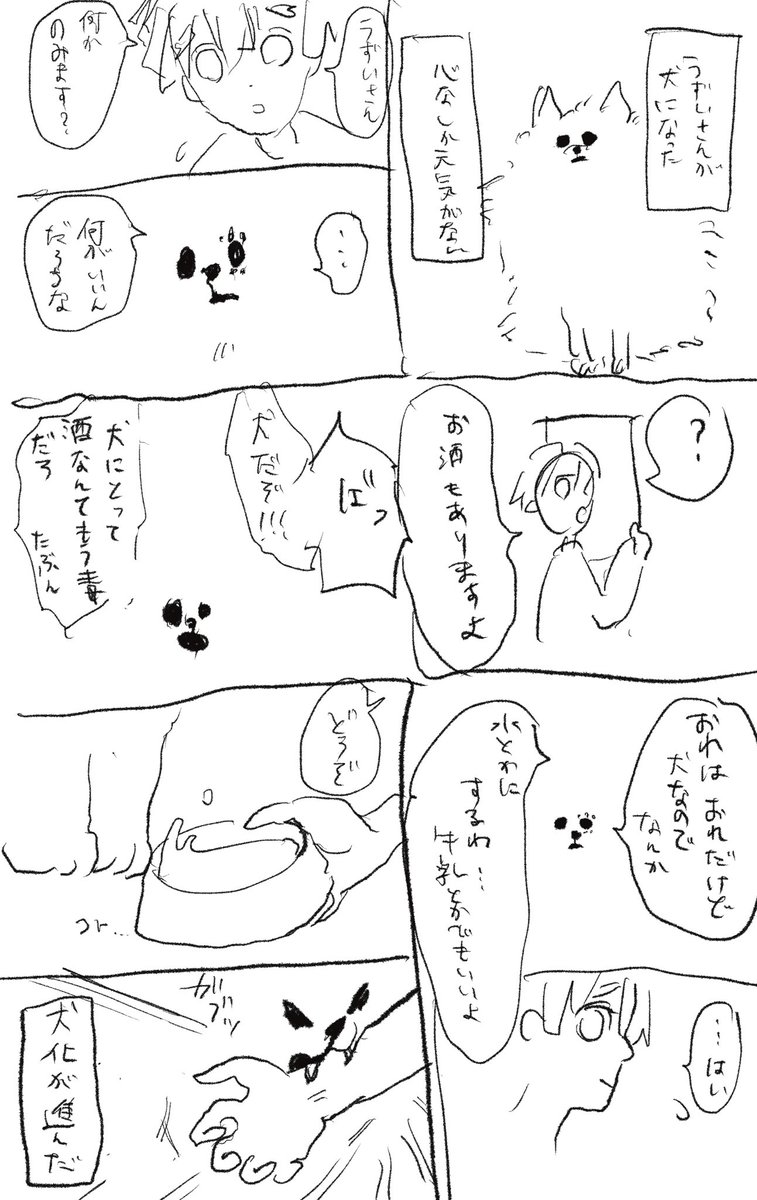 うずいさんが
犬になった
心なしか元気がない
うずいさん
何か
のみます?
…
何がいいん
だろうな
?
お酒もありますよ
ばっ
犬だぞ!!!
犬にとって
酒なんてもう毒
だろ
たぶん
おれはおれだけど
犬なので
なんか
水とかに
するわ…
牛乳とかでもいいよ
…はい
どうぞ
コト…
ガブッ
犬化が進んだ